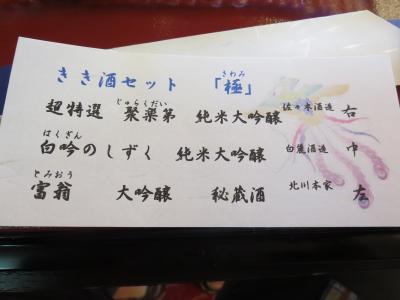 きき酒セット 「極」きわみ
超特選 聚楽第じゅらくだい 純米大吟醸 佐々木酒造 右
白吟のしずくはくぎん 純米大吟醸 白麓酒造 中
富翁とみおう 大吟醸 秘蔵酒 北川本家 左